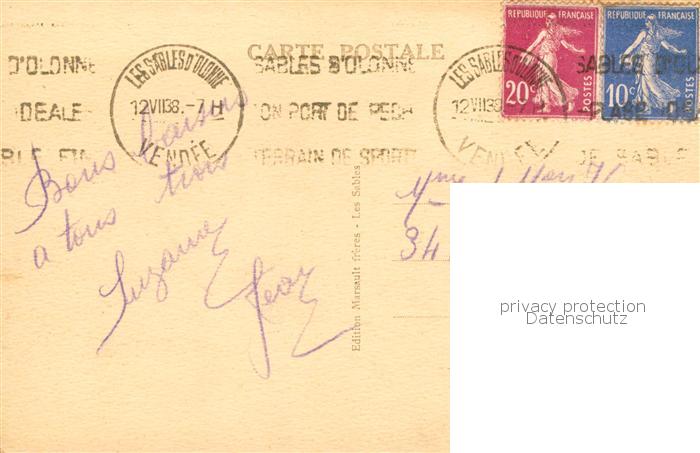 CARTE POSTALE
RÉPUBLIQUE FRANÇAISE
20c POSTES
RÉPUBLIQUE FRANÇAISE
10c POSTES
D'OLONNE
LES SABLES D'OLONNE
12 VII 38 . - 7 H
VENDÉE
SABLES D'OLONNE
ON PORT DE PECH
TERRAIN DE SPORT
LES SABLES D'OLONNE
12 VII 38
VENDÉE
SABLES D'OL
PLAGE
DE SABLE
Bons baisers
a tous trois
Suzanne
Jean
Mme
34
Edition Marsault frères - Les Sables
privacy protection
Datenschutz